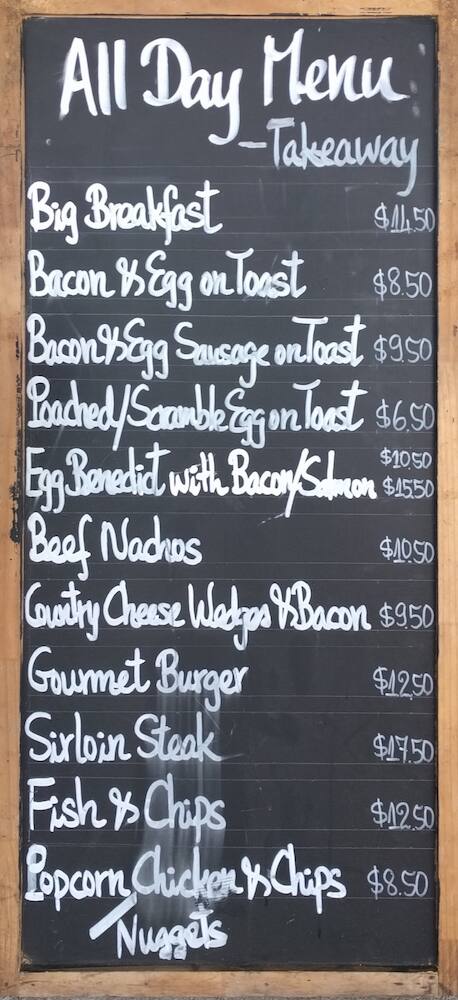 All Day Menu
-Takeaway
Big Breakfast $14.50
Bacon & Egg on Toast $8.50
Bacon & Egg Sausage on Toast $9.50
Poached/Scramble Egg on Toast $6.50
Egg Benedict with Bacon/Salmon $10.50 $15.50
Beef Nachos $10.50
Country Cheese Wedges & Bacon $9.50
Gourmet Burger $12.50
Sirloin Steak $17.50
Fish & Chips $12.50
Popcorn Chicken & Chips $8.50
/Nuggets